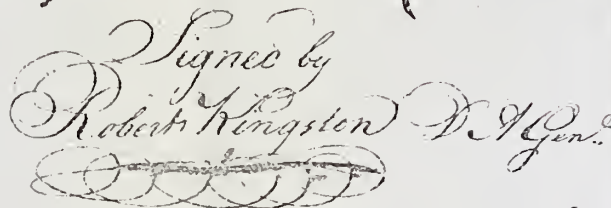 Signed by
Robert Kingston D A Gen.